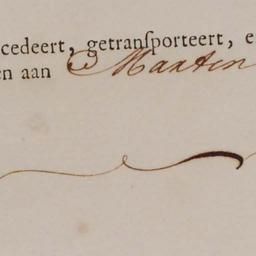 cedeert, getranſporteert, e
en aan Maarten